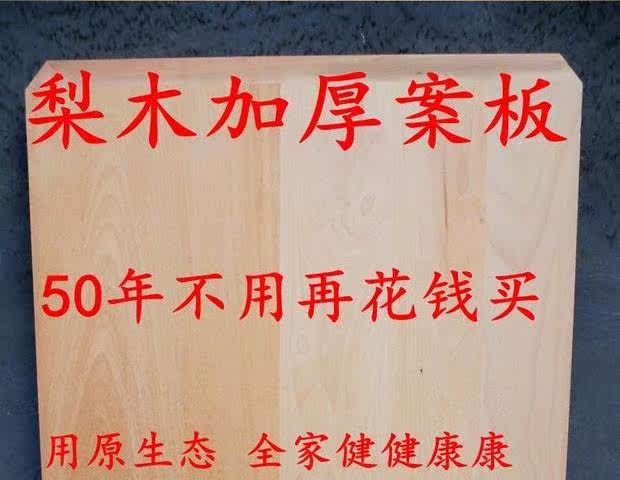 梨木加厚案板
50年不用再花钱买
用原生态 全家健健康康